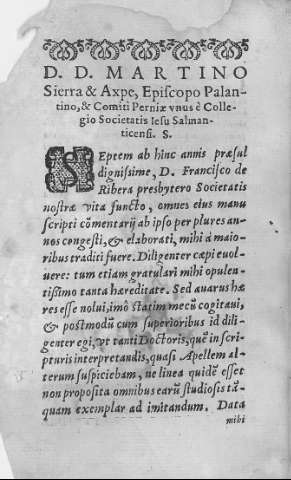 D. D. MARTINO
Sierra & Axpe, Episcopo Palan-
tino, & Comiti Perniæ vnus è Colle-
gio Societatis Iesu Salman-
ticensi. S.
SEptem ab hinc annis præsul
dignissime, D. Francisco de
Ribera presbytero Societatis
nostræ vita functo, omnes eius manu
scripti cõmentarij ab ipso per plures an-
nos congesti, & elaborati, mihi à maio-
ribus traditi fuere. Diligenter cæpi euol-
uere: tum etiam gratulari mihi opulen-
tissimo tanta hæreditate. Sed auarus hæ
res esse nolui, imò statim mecũ cogitaui,
& postmodũ cum superioribus id dili-
genter egi, vt tanti Doctoris, quẽ in scri-
pturis interpretandis, quasi Apellem al-
terum suspiciebam, ne linea quidẽ esset
non proposita omnibus earũ studiosis tã-
quam exemplar ad imitandum. Data
mihi